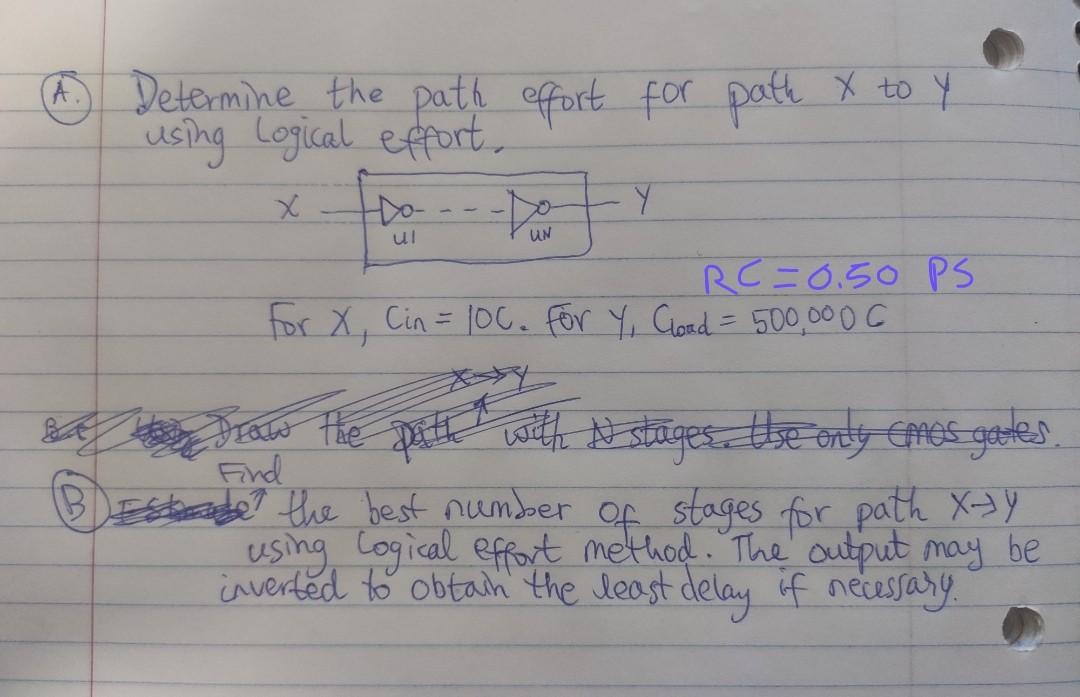 A. Determine the path effort for path X to Y
using Logical effort.
X
Y
U1
UN
RC = 0.50 PS
For X, Cin = 10C. For Y, Cload = 500,000 C
X → Y
Draw the path with N stages. Use only cmos gates.
Find
B the best number of stages for path X→Y
using Logical effort method. The output may be
inverted to obtain the least delay if necessary.